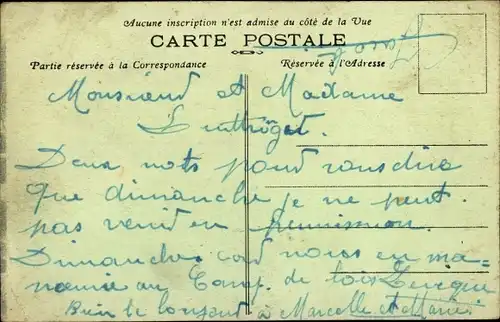 Aucune inscription n'est admise du côté de la Vue
CARTE POSTALE
Partie réservée à la Correspondance
Réservée à l'Adresse
Monsieud et Madame
Deux mots poud vous dire
que dimanche je ne peut
pas venid en permission.
Dimanche cad nous en ma-
nœuvre au Camp de
Bien le bonjoud à Marcelle et Marie